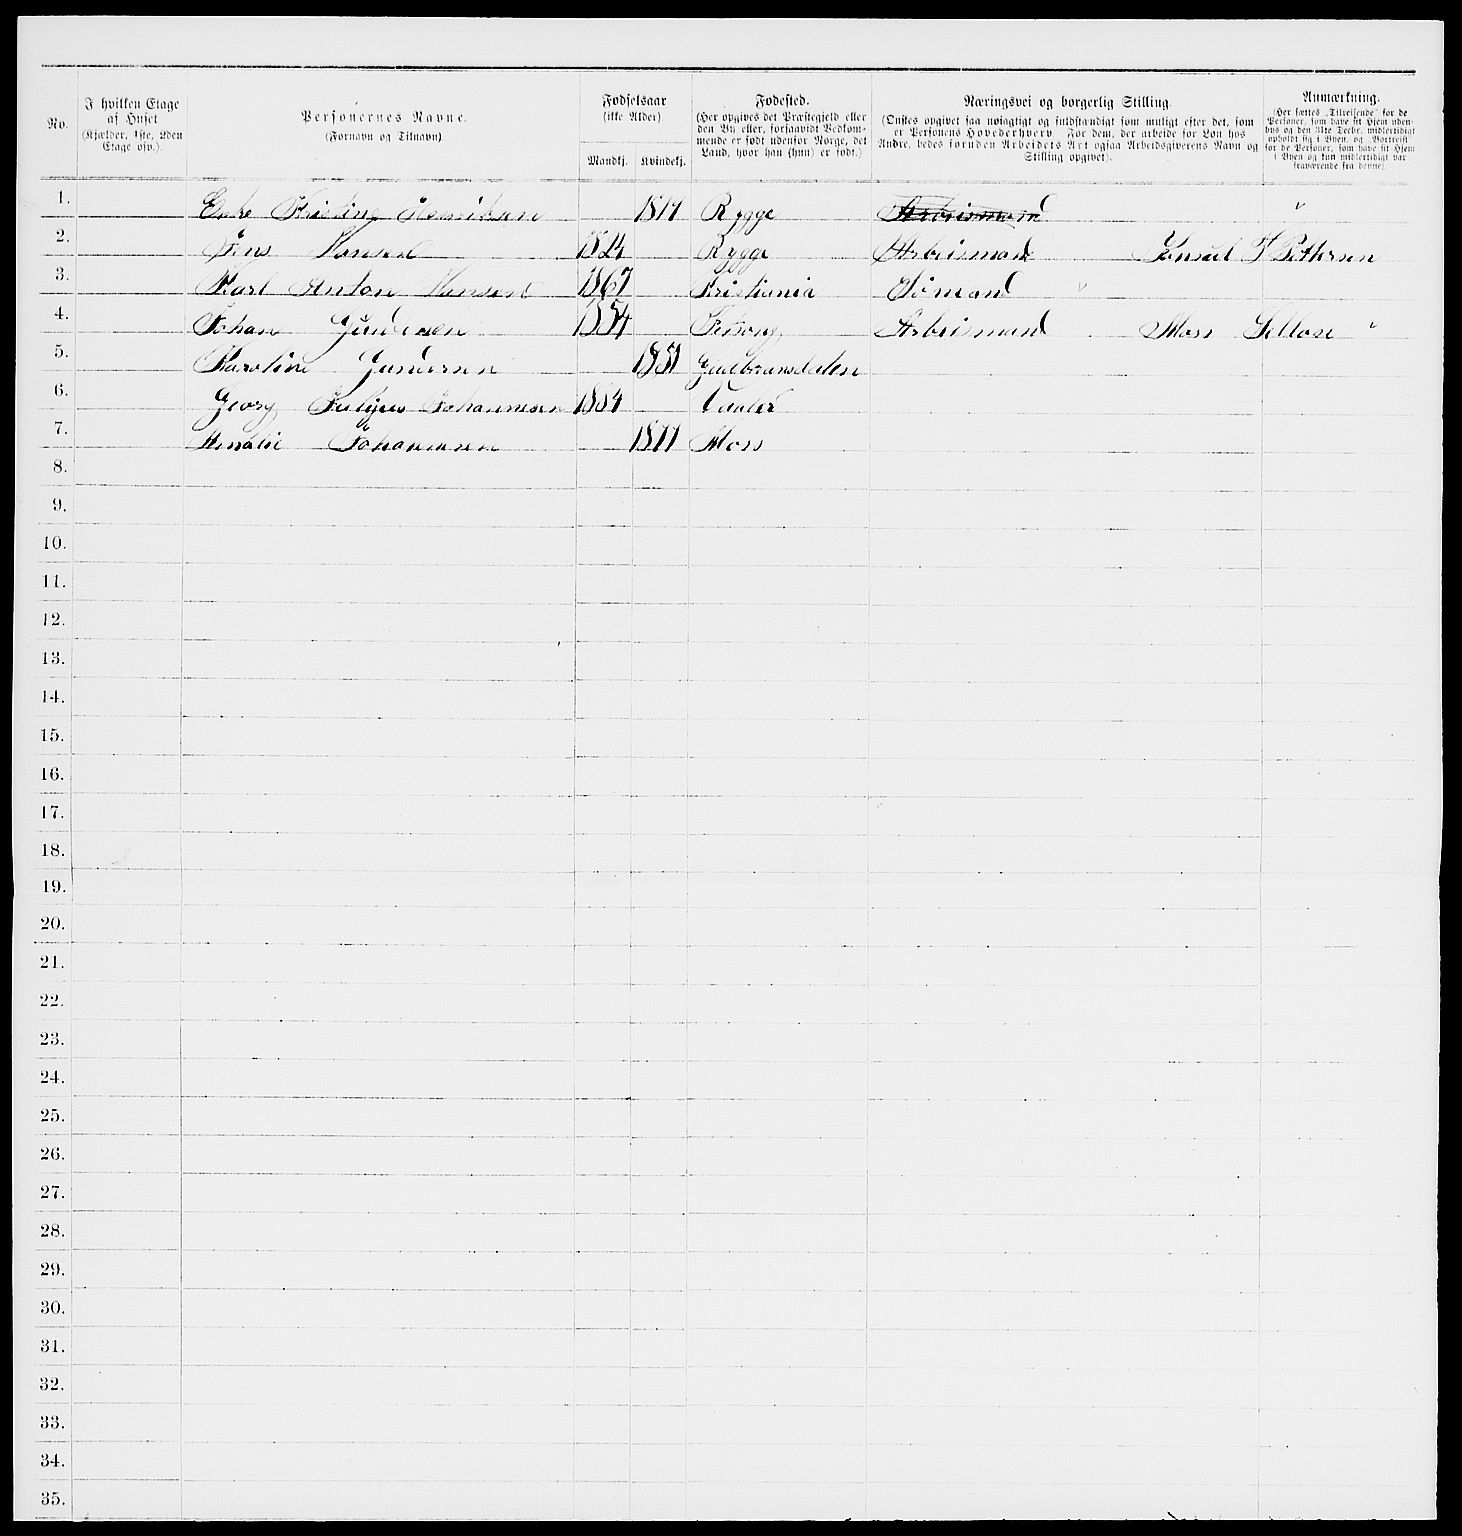 No.
I hvilken Etage af Huset
(Kjælder, 1ste, 2den Etage osv.).
Personernes Navne.
(Fornavn og Tilnavn).
Fødselsaar
(ikke Alder)
Mandkj. Kvindekj.
Fødested.
(Her opgives det Præstegjeld eller
den By eller, forsaavidt Vedkom-
mende er født udenfor Norge, det
Land, hvor han (hun) er født.)
Næringsvei og borgerlig Stilling.
(Ønskes opgivet saa nøiagtigt og fuldstændigt som muligt efter det, som
er Personens Hovederhverv. For dem, der arbeide for Løn hos
Andre, bedes foruden Arbeidets Art ogsaa Arbeidsgiverens Navn og
Stilling opgivet).
Anmærkning.
(Her sættes „Tilreisende" for de
Personer, som have sit Hjem uden-
bys og den 31te Decbr. midlertidigt
opholdt sig i Byen, og „Bortreist"
for de Personer, som have sit Hjem
i Byen og kun midlertidigt var
fraværende fra denne).
1. Enke Kristine Henriksen 1817 Rygge Arbeismand "
2. Jens Hansen 1824 Rygge Arbeismand Konsul Pettersen
3. Karl Anton Hansen 1867 Kristiania Sømand "
4. Johan Gundersen 1854 Arbeismand Moss "
5. Karoline Gundersen 1851 Gudbransdalen
6. Georg Johannesen 1884 Vaaler
7. Amalie Johannesen 1877 Moss
8.
9.
10.
11.
12.
13.
14.
15.
16.
17.
18.
19.
20.
21.
22.
23.
24.
25.
26.
27.
28.
29.
30.
31.
32.
33.
34.
35.